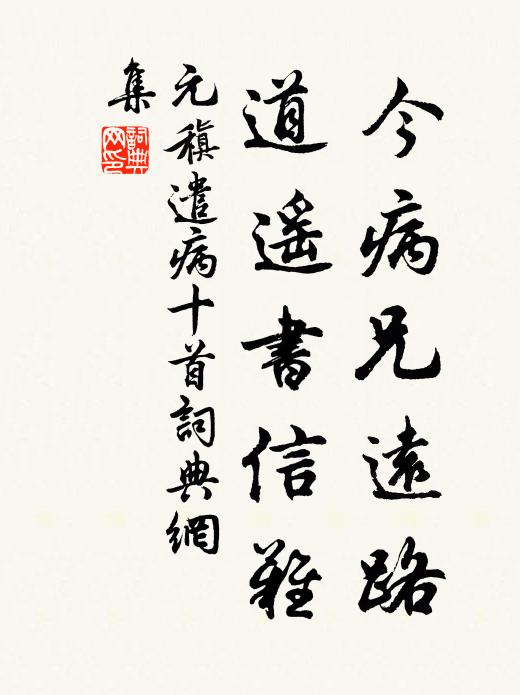 今病兄遠路
道遥書信難
元稹遣病十首詞典網
集
詞典网印